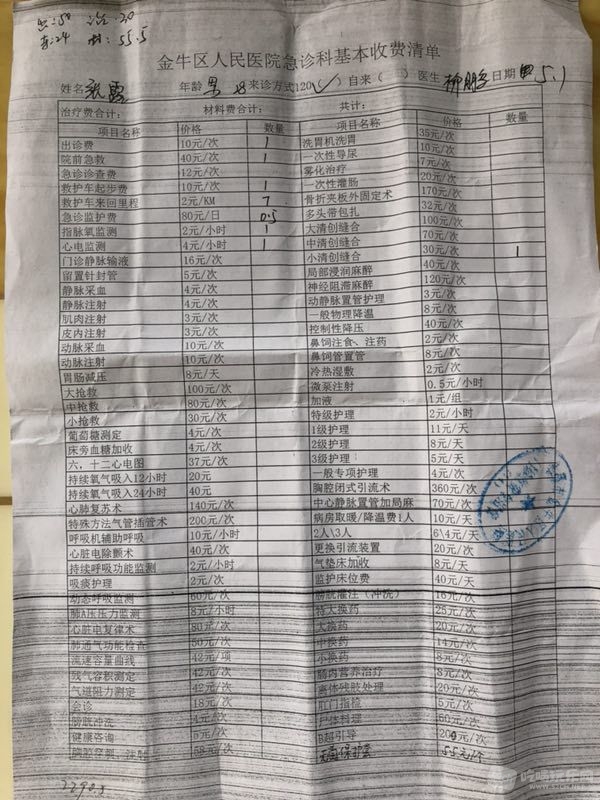 出:50 治:20
材:55.5
金牛区人民医院急诊科基本收费清单
姓名 年龄 男 来诊方式120(√) 自来( ) 医生 日期 5.1
治疗费合计: 材料费合计: 共计:
项目名称 价格 数量
出诊费 10元/次 1
院前急救 40元/次 1
急诊诊查费 12元/次
救护车起步费 10元/次 1
救护车来回里程 2元/KM 7
急诊监护费 80元/日 0.5
指脉氧监测 2元/小时 1
心电监测 4元/小时 1
门诊静脉输液 16元/次
留置针封管 5元/次
静脉采血 4元/次
静脉注射 4元/次
肌肉注射 3元/次
皮内注射 3元/次
动脉采血 10元/次
动脉注射 10元/次
胃肠减压 8元/天
大抢救 100元/次
中抢救 80元/次
小抢救 30元/次
葡萄糖测定 4元/次
床旁血糖加收 4元/次
六,十二心电图 37元/次
持续氧气吸入12小时 20元
持续氧气吸入24小时 40元
心肺复苏术 140元/次
特殊方法气管插管术 200元/次
呼吸机辅助呼吸 10元/小时
心脏电除颤术 40元/次
持续呼吸功能监测 2元/小时
吸痰护理 2元/次
动态呼吸监测 60元/次
肺A压压力监测 8元/小时
心脏电复律术 80元/次
肺通气功能检查 50元/次
流速容量曲线 42元/项
残气容积测定 42元/次
气道阻力测定 42元/次
会诊 18元/次
膀胱冲洗 4元/次
健康咨询 5元/次
胸腔穿刺、注射 58元/次
项目名称 价格 数量
洗胃机洗胃 35元/次
一次性导尿 10元/次
雾化治疗 7元/次
一次性灌肠 20元/次
骨折夹板外固定术 170元/次
多头带包扎 32元/次
大清创缝合 100元/次
中清创缝合 70元/次
小清创缝合 30元/次 1
局部浸润麻醉 40元/次
神经阻滞麻醉 120元/次
动静脉置管护理 3元/次
一般物理降温 8元/次
控制性降压 40元/次
鼻饲注食、注药 2元/次
鼻饲管置管 8元/次
冷热湿敷 2元/次
微泵注射 0.5元/小时
加液 1元/组
特级护理 2元/小时
1级护理 11元/天
2级护理 8元/天
3级护理 5元/天
一般专项护理 4元/次
胸腔闭式引流术 360元/次
中心静脉置管加局麻 70元/次
病房取暖/降温费1人 10元/天
2人\3人 6\4元/天
更换引流装置 20元/次
气垫床加收 8元/天
监护床位费 40元/天
膀胱灌注(冲洗) 16元/次
特大换药 25元/次
大换药 20元/次
中换药 14元/次
小换药 8元/次
肠内营养治疗 8元/次
离体残肢处理 20元/次
肛门指检 5元/次
尸体料理 60元/次
B超引导 200元/次
55元/个